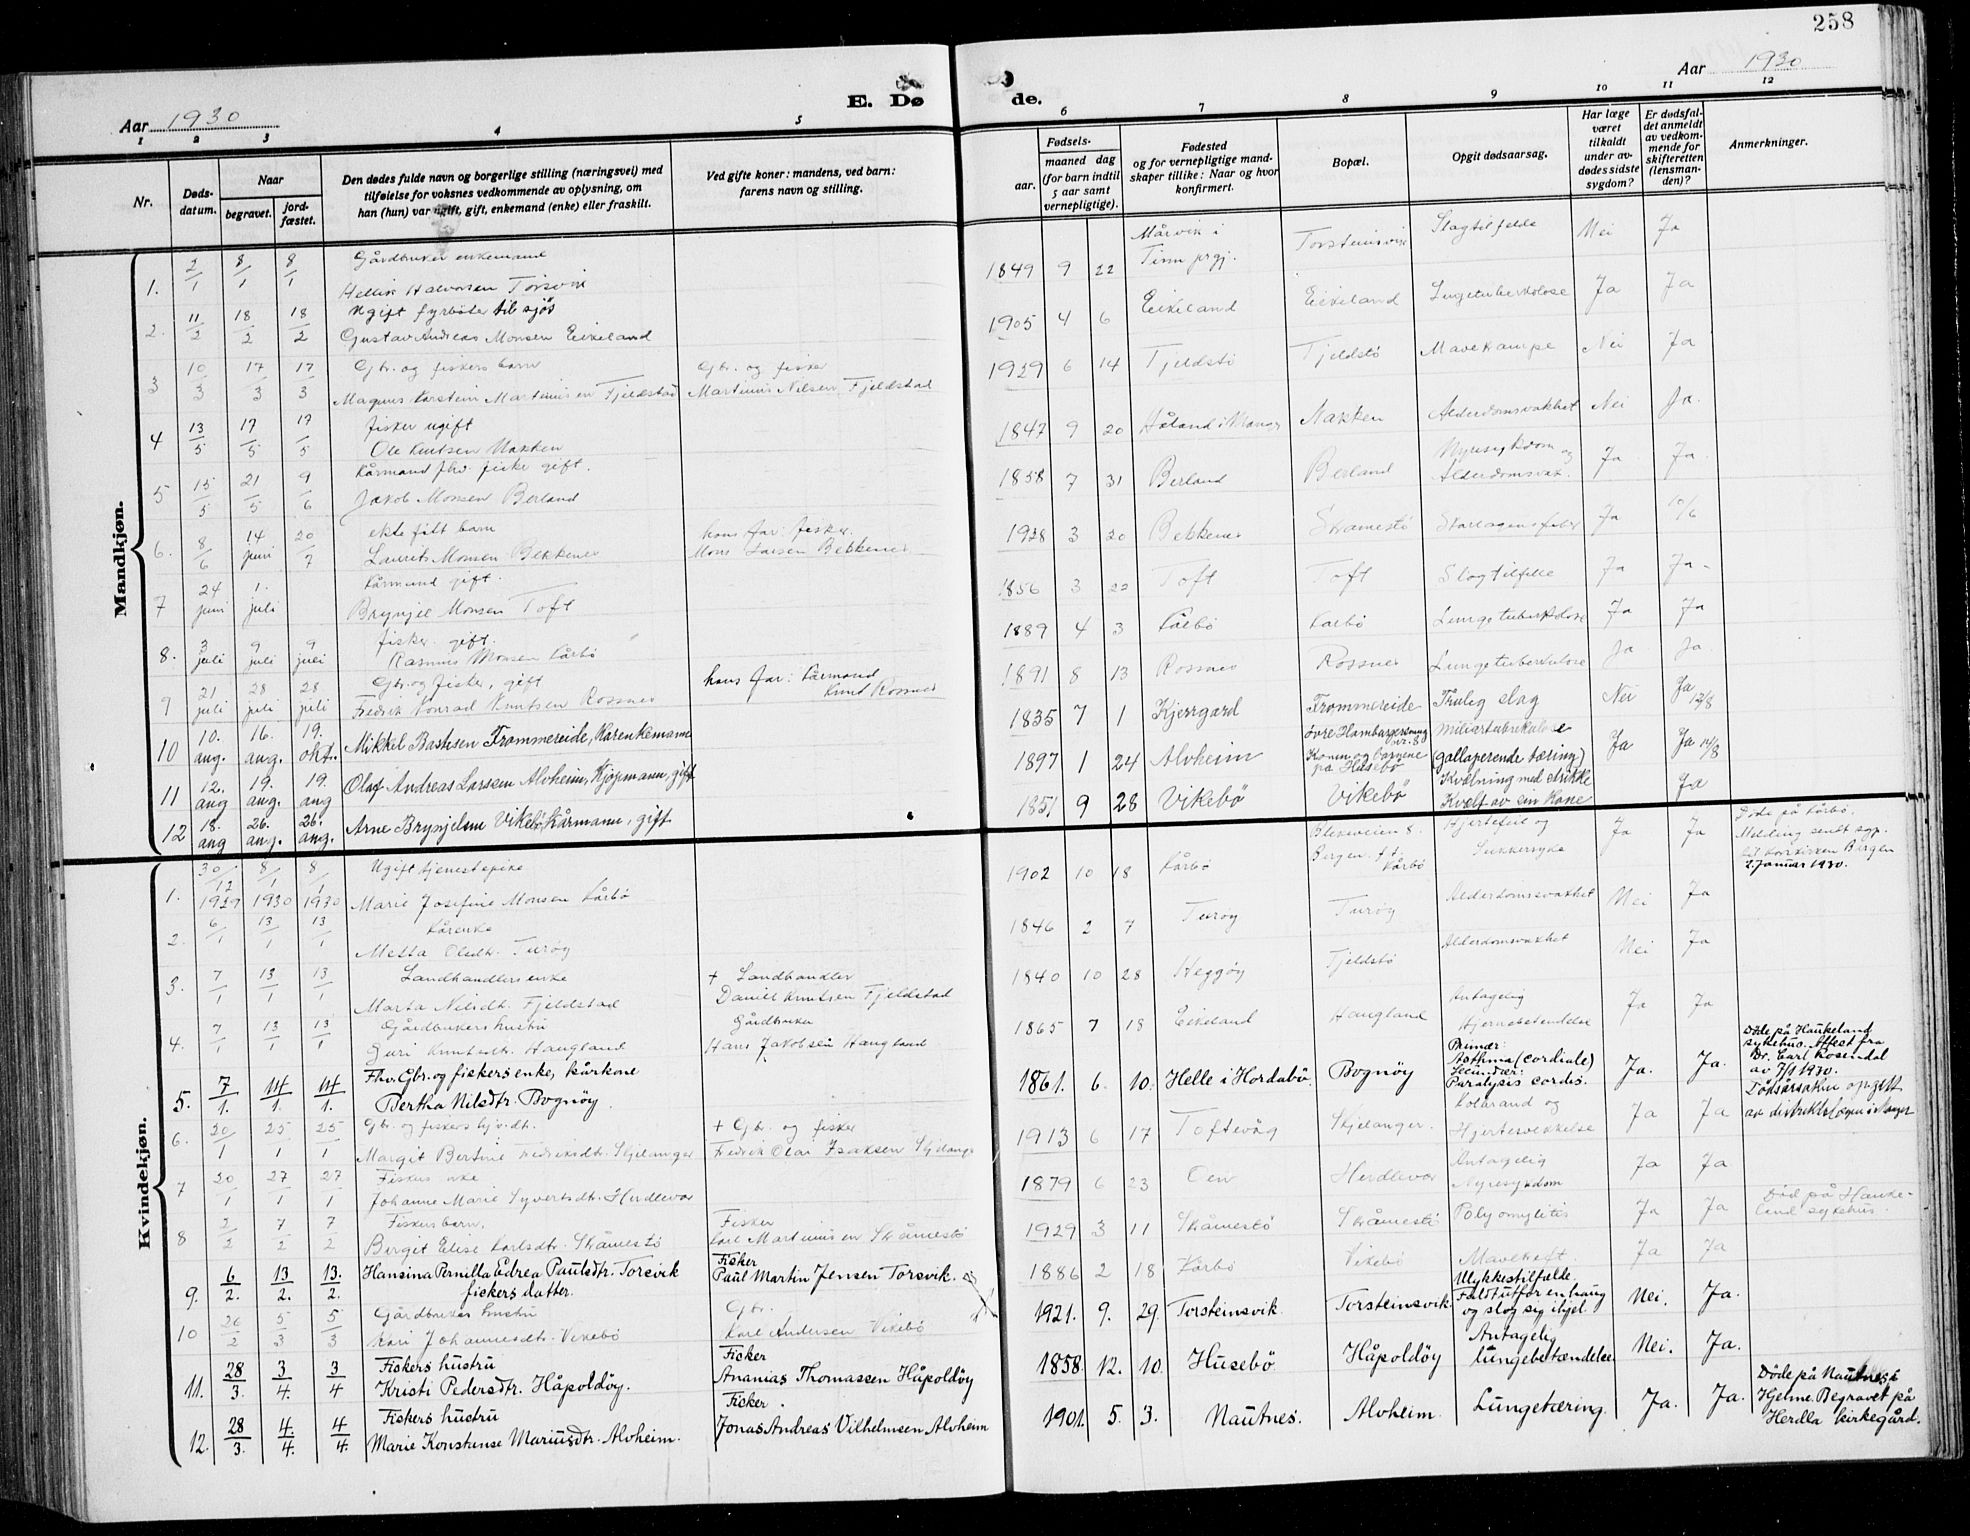 258
Aar 1930
E. Dø
de.
Aar 1930
1 2 3 4 5 6 7 8 9 10 11 12
Nr.
Døds-
datum.
Naar
begravet.
jord-
fæstet.
Den dødes fulde navn og borgerlige stilling (næringsvei) med
tilføielse for voksnes vedkommende av oplysning, om
han (hun) var ugift, gift, enkemand (enke) eller fraskilt.
Ved gifte koner: mandens, ved barn:
farens navn og stilling.
Fødsels-
aar.
maaned dag
(for barn indtil
5 aar samt
vernepligtige).
Fødested
og for vernepligtige mand-
skaper tillike: Naar og hvor
konfirmert.
Bopæl.
Opgit dødsaarsag.
Har læge
været
tilkaldt
under av-
dødes sidste
sygdom?
Er dødsfal-
det anmeldt
av vedkom-
mende for
skifteretten
(lensman-
den)?
Anmerkninger.
Mandkjøn.
1. 2/1 8/1 8/1 Gårdbruker enkemand
Hellik Halvorsen Torsvik
1849 9 22 Mårvik i
Tinn prgj. Torsteinsvik Slagtilfelde Nei Ja
2. 11/2 18/2 18/2 Ugift fyrbøter til sjøs
Gustav Andreas Monsen Eikeland
1905 4 6 Eikeland Eikeland Lungetuberkolose Ja Ja
3 10/3 17/3 17/3 Gbr. og fiskers barn
Magnus Karstein Martinussen Fjeldstad
Gbr. og fisker
Martinus Nilsen Fjeldstad
1929 6 14 Tjeldstø Tjeldstø Mavekrampe Nei Ja
4 13/5 17/5 17/5 fisker ugift
Ole Knutsen Nakken
1847 9 20 Håland i Manger Nakken Alderdomsvakhet Nei Ja.
5 15/5 21/5 9/6 Kårmand fhv. fisker gift.
Jakob Monsen Berland
1858 7 31 Berland Berland Nyresykdom og
Alderdomsvak. Ja Ja.
6. 8/6 14 juni 20/7 ekte født barn
Laurits Monsen Bekkenes
hans far: fisker.
Mons Larsen Bekkenes
1928 3 20 Bekkenes Skramestø Skarlagensfeber Ja 10/6
7 24 juni 1. juli Kårmand gift.
Brynjel Monsen Toft
1856 3 22 Toft Toft Slagtilfelle Ja Ja
8. 3 juli 9 juli 9 juli fisker. gift.
Rasmus Monsen Kårbø
1889 4 3 Kårbø Kårbø Lungetuberkolose Ja Ja
9 21 juli 28 juli 28 juli Gbr. og fisker, gift
Fredrik Konrad Knutsen Rossnes
hans far: Kårmand
Knut Rossnes
1891 8 13 Rossnes Rossnes Lungetuberkulose Ja Ja.
10 10. aug. 16. aug. 19. okt. Mikkel Bastesen Frommereide, Kårenkemann
1835 7 1 Kjerrgard Frommereide Trulig slag Nei Ja 12/8
11 12. aug 19. aug. 19. aug Olaf Andreas Larssen Alvheim, Kjøpmann, gift
1897 1 24 Alvheim Øvre Hambargsredning nr. 8
Konen og barnene
på Husebø
Miliærtuberkulose
(gallaperende tæring) Ja Ja 14/8
12 18. aug 26. aug. 26. aug. Arne Brynjelsen Vikebø, Kårmann, gift
1851 9 28 Vikebø Vikebø Kvælning med strikke
Kvalt av sin Kone Ja
Kvindekjøn.
1. 30/12 1929 8/1 1930 8/1 1930 Ugift tjenestepike
Marie Josefine Monsen Kårbø
1902 10 18 Kårbø Blekeveien 8.
Bergen. f.t.
Kårbø Hjertefeil og
Sukkersyke Ja Ja Døde på Kårbø.
Melding sendt sgp.
til Korskirken Bergen
2. Januar 1930.
2. 6/1 13/1 13/1 Kårenke
Metta Olsdtr. Turøy
1846 2 7 Turøy Turøy Alderdomsvakhet Nei Ja
3. 7/1 13/1 13/1 Landhandlers enke
Marta Nilsdtr. Fjeldstad
+ Landhandler
Daniel Knutsen Fjeldstad
1840 10 28 Heggøy Tjeldstø Alderdomsvakhet Nei Ja
4. 7/1 13/1 13/1 Gårdbrukers hustru
Guri Knutsdtr. Haugland
Gårdbruker
Hans Jakobsen Haugland
1865 7 18 Eikeland Haugland Antagelig
Hjernebetendelse Ja Ja
5. 7/1. 14/1. 14/1. Fhv. Gbr. og fiskers enke, kårkone
Bertha Nilsdtr. Bognøy
1861. 6. 10. Helle i Hordabø. Bognøy Primær:
Asthma (cordiale)
Secundær:
Paralysis cordis. Ja. Ja. Døde på Haukeland
sykehus. Attest fra
Dr. Carl Rosendal
av 7/1 1930.
Dødsårsaken opgitt
av distriktslægen i Manger
6. 20/1 25/1 25/1 Gbr. og fiskers hjv. dtr.
Margit Bertine Fredriksdtr. Skjelanger
+ Gbr. og fisker
Fredrik Olai Isaksen Skjelanger
1913 6 17 Toftevåg Skjelanger. Koldbrand og
Hjertesvekkelse Ja Ja
7 20/1 27/1 27/1 Fiskers enke
Johanne Marie Syvertsdtr. Herdlevær
1879 6 23 Oen Herdlevær Antagelig
Nyresykdom Ja Ja
8 2/2 7/2 7/2 Fiskersbarn.
Birgit Elise Karlsdtr. Skåmestø
Fisker
Karl Martinussen Skåmestø
1929 3 11 Skåmestø Skåmestø Polyomylitis Ja Ja Død på Hauke-
land sykehus.
9. 6/2. 13/2. 13./2. Hansina Pernilla Edrea Paulsdtr. Torsvik
fiskers datter.
Fisker
Paul Martin Jensen Torsvik.
1886 2 18 Kårbø Vikebø Mavekreft. Ja Ja
10 26/2 5/3 5/3 Gårdbrukers hustru
Kari Johannesdtr. Vikebø
Gbr.
Karl Andersen Vikebø
1921. 9. 29. Torsteinsvik. Torsteinsvik. Ulykkestilfælde
Faldt utfor en haug
og slog sig ihjel. Nei. Ja.
11. 28/3. 3/4. 3/4 Fiskers hustru
Kristi Pedersdtr. Håpoldøy.
Fisker
Ananias Thomassen Håpoldøy
1858 12. 10. Husebø Håpoldøy Antagelig
lungebetændelse. Nei. Ja.
12. 28/3. 4/4. 4/4. Fiskers hustru
Marie Konstanse Mariusdtr. Alvheim.
Fisker.
Jonas Andreas Vilhelmsen Alvheim
1901. 5. 3. Nautnes. Alvheim. Lungetæring. Ja. Ja. Døde på Nautnes i
Hjelme. Begravet på
Herdla kirkegård.